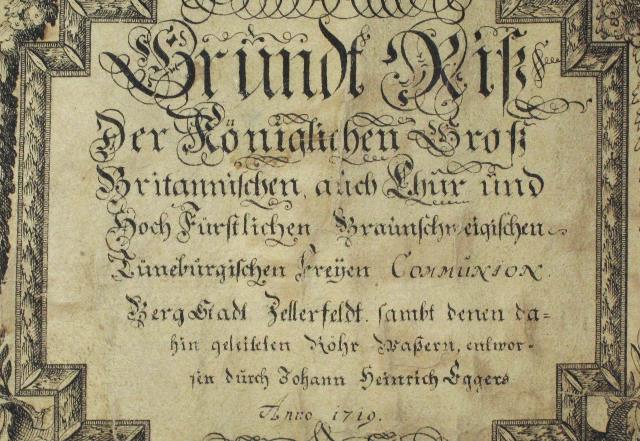 Gründt Riß
Der Königlichen Groß
Britannischen, auch Chür und
Hoch Fürstlichen Braunschweigischen
Lüneburgischen Freÿen COMMUNION
Berg Stadt Zellerfeldt. sambt denen da=
hin geleiteten Röhr Waßern, entwor-
fen dürch Johann Heinrich Eggers
Anno 1719.